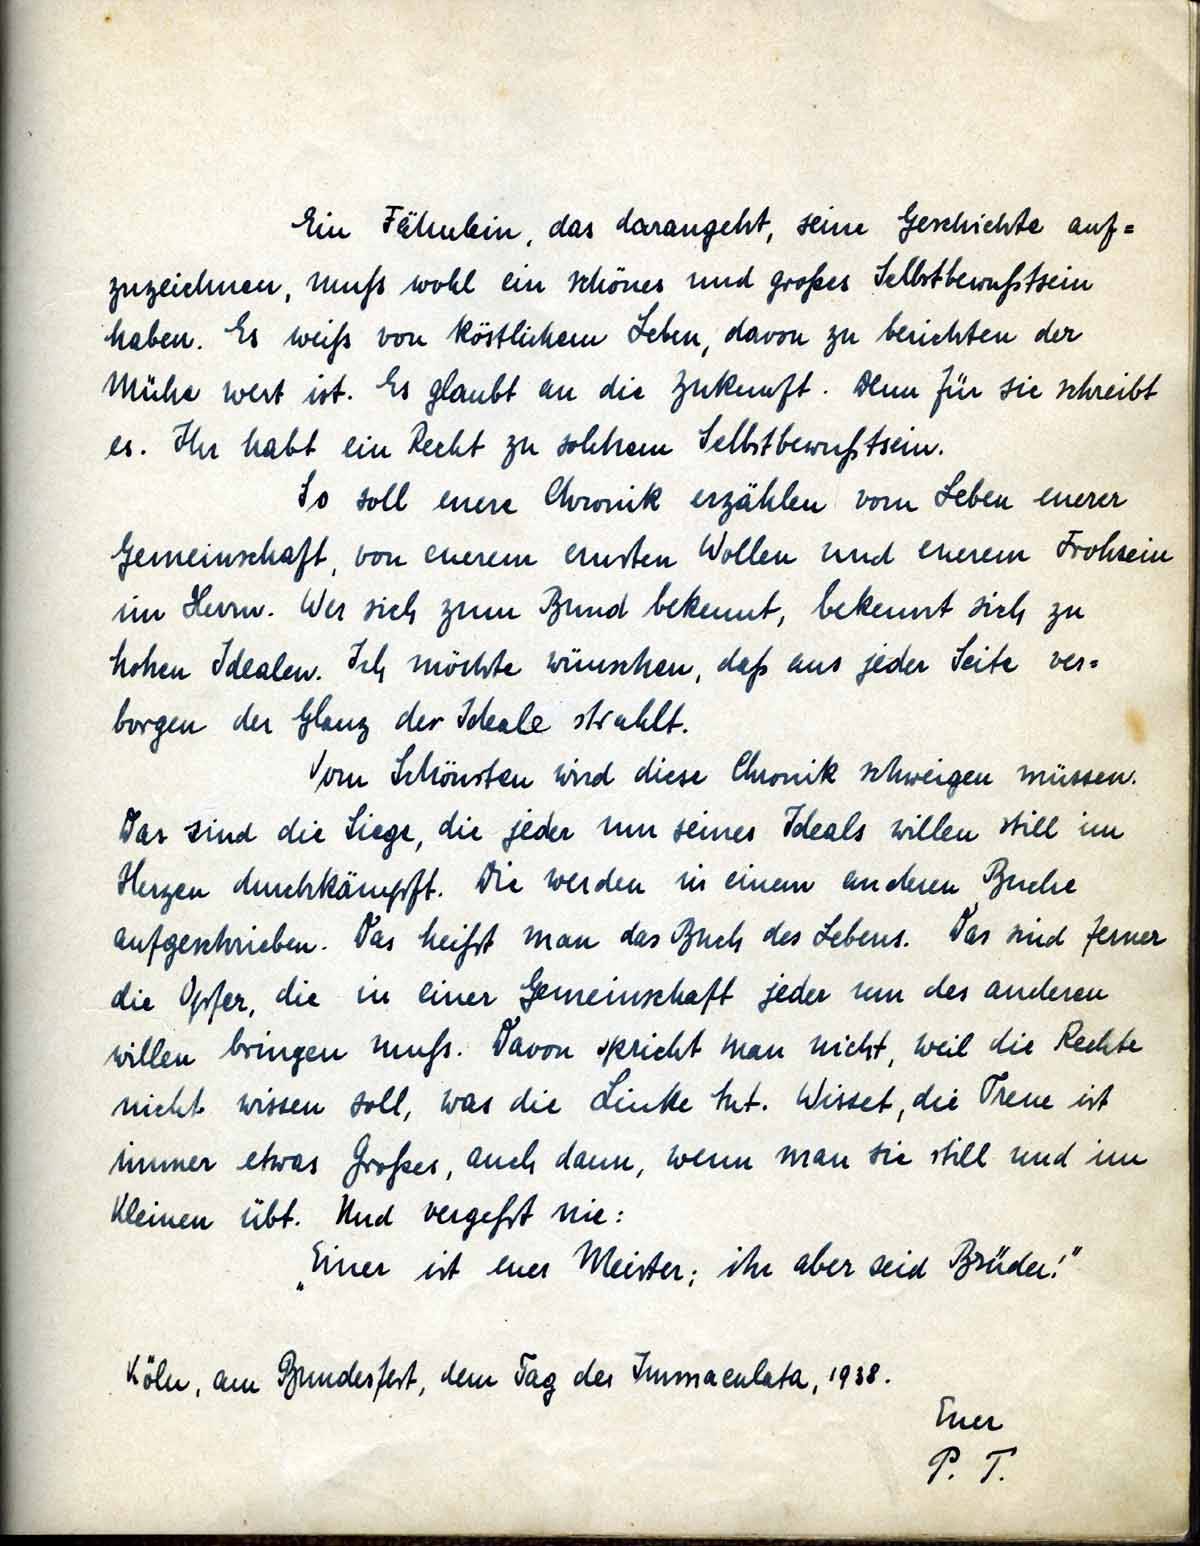 Ein Fähnlein, das darangeht, seine Geschichte auf=
zuzeichnen, muß wohl ein schönes und großes Selbstbewußtsein
haben. Es weiß von köstlichem Leben, davon zu berichten der
Mühe wert ist. Es glaubt an die Zukunft. Denn für sie schreibt
es. Ihr habt ein Recht zu solchem Selbstbewußtsein.
So soll euere Chronik erzählen vom Leben euerer
Gemeinschaft, von euerem ernsten Wollen und euerem Frohsein
im Herrn. Wer sich zum Bund bekennt, bekennt sich zu
hohen Idealen. Ich möchte wünschen, daß aus jeder Seite ver=
borgen der Glanz der Ideale strahlt.
Vom Schönsten wird diese Chronik schweigen müssen.
Das sind die Siege, die jeder um seines Ideals willen still im
Herzen durchkämpft. Die werden in einem anderen Buche
aufgeschrieben. Das heißt man das Buch des Lebens. Das sind ferner
die Opfer, die in einer Gemeinschaft jeder um des anderen
willen bringen muß. Davon spricht man nicht, weil die Rechte
nicht wissen soll, was die Linke tut. Wisset, die Treue ist
immer etwas Großes, auch dann, wenn man sie still und im
Kleinen übt. Und vergeßt nie:
„Einer ist euer Meister; ihr aber seid Brüder!"
Köln, am Bundesfest, dem Tag der Immaculata, 1938.
Euer
P. T.